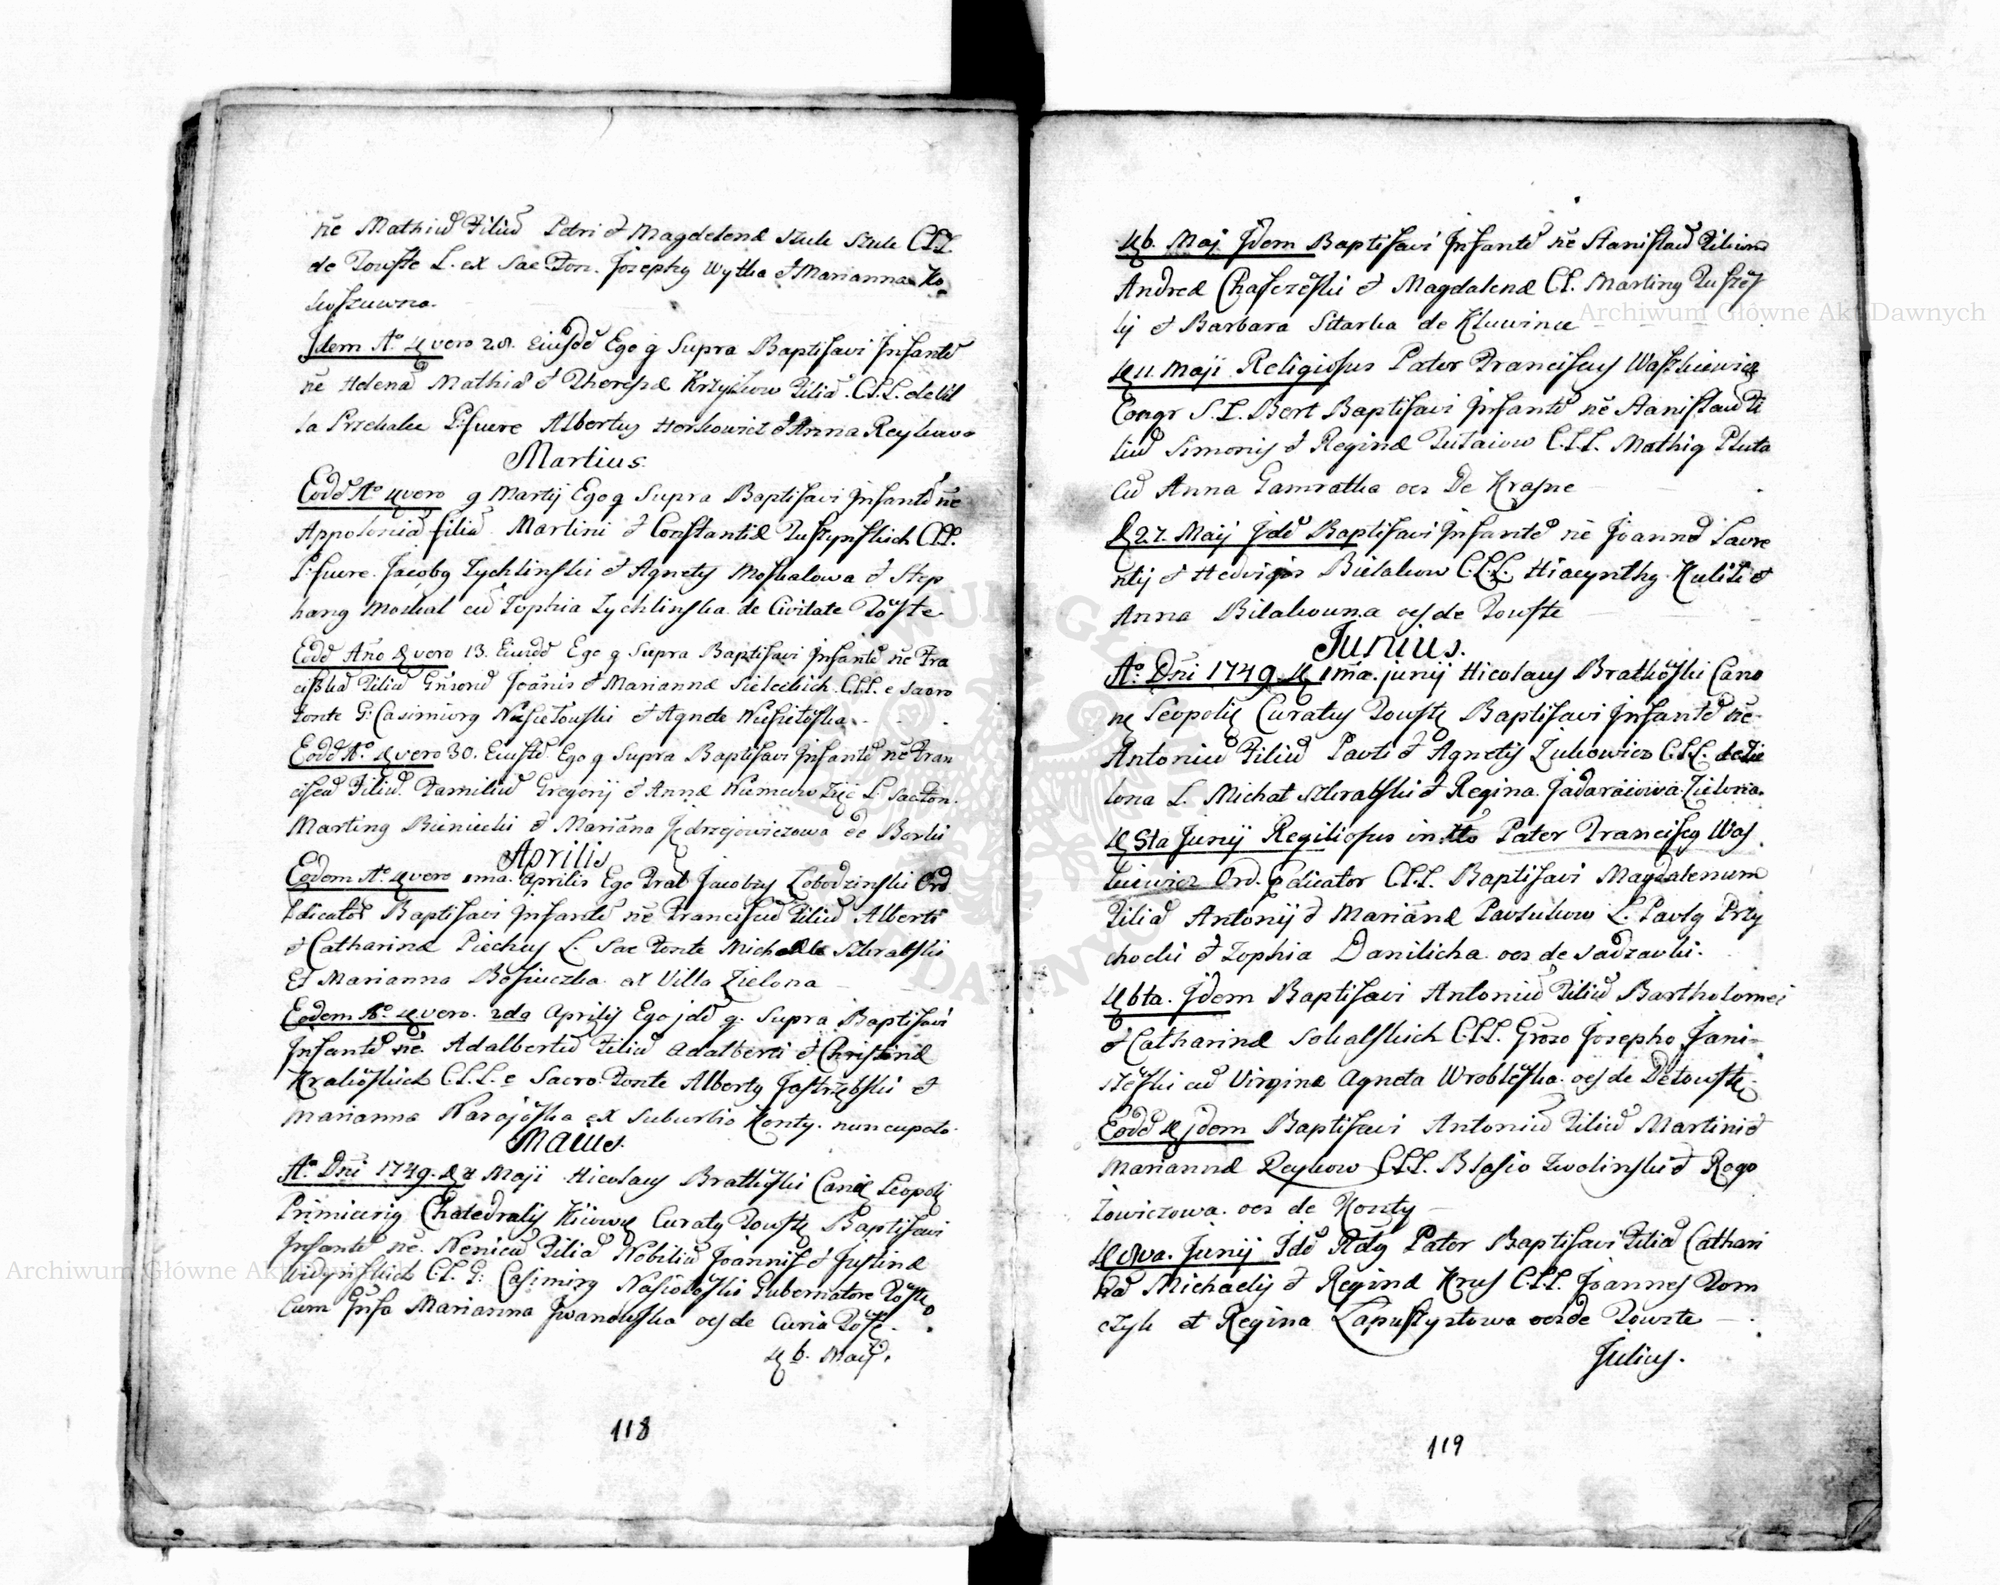 nē Mathiū Filiū Petri et Magdelenæ Szule Szule C.L.L.
de Touste L. ex Sac Fon. Josephy Wytka et Marianna Ko
koszuwna.
Idem A° vero 28. Eiusdē Ego q Supra Baptisavi Infantē
nē Helenā Mathiæ et Theresæ Krzyskow Filiā C.L.L. de Vil
la Przekalec P: fuere Albertus Horkowicz et Anna Reykow
Martius.
Eodē A° vero 9 Martij Ego q Supra Baptisavi Infantē nē
Appoloniā filiā Martini et Constantiæ Tuszynskich C.L.L.
P: fuere. Jacobq Zychlinski et Agnetis Moskalowa et Step
hang Moskal cū Zophia Zychlinska de Civitate Tōste
Eodē Año vero 13. Eiusdē Ego q Supra Baptisavi Infantē nē Fra
ciskā Filiā Gñsorū Joānis et Mariannæ Sieleckich C.L.L. e Sacro
Fonte G: Casimirq et Agneta
Eodē A° vero 30. Eiusdē Ego q Supra Baptisavi Infantē nē Fran
ciscū Filiū Familiū Gregorij et Annæ L: Sac Fon.
Martinq Bieniecki et Mariāna Jędrzejowiczowa de Borki
Aprilis
Eodem A° vero 1ma. Aprilis Ego Frat Jacobus Lobodzinski Ord
Pdicatōr Baptisavi Infantē nē Franciscū Filiū Alberti
et Catharinæ Piechus L. Sac Fonte Michaele Szkrabski
Et Marianna ex Villa Zielona
Eodem A° vero. 2da Aprilis Ego jdē q. Supra Baptisavi
Infantē nē. Adalbertū Filiū Adalberti et Christinæ
Krakōskich C.L.L. e Sacro Fonte Albertq Jastrzębski et
Marianna Narajōska ex Suburbio Konty. nuncupato.
Maius.
A° Dni 1749. Maji Nicolaus Bratkōski Canōs Leopol
Primicerig Chatedralis Kijowę Curatq Toustę Baptisavi
Infantē nē. Filiā Nobiliū Joannis et Justinæ
C.L. G: Casimirq Gubernatore Tōstę
Cum Gnsa Marianna Jwanowska oes de Curia Tōste.
6. Maij.
118
6. Maj Jdem Baptisavi Infantē nē Stanislaū Filium
Andreæ Chaszczēski et Magdalenæ C.L. Martinq
kij et Barbara Sitarka de Kluwince
11. Maji Religiosus Pater Franciscus Waszkiewicz
Congr S.L. Bert Baptisavi Infantē nē Stanislaū Fi
liū Simonis et Reginæ C.L.L. Mathiq Pluta
Cū Anna Gamratka oes De Krasne
27. Maij Jdē Baptisavi Infantē nē Joannē Laure
ntij et Hedvigis Bielakow C.L.L. Hiacynthq et
Anna Bilakowna oes de Touste
Junius.
A° Dni 1749. 1ma. junij Nicolaus Bratkōski Cano
nę Leopolię Curatus Toustę Baptisavi Infantē nē
Antoniū Filiū Pavli et Agnetis Zukowicz C.L.L. de Zie
lona L. Michal Szkrabski et Regina Zielona.
5ta Junij Regiliosus in tto Pater Franciscq Was
kiewicz Ord. Pdicator C.L.L. Baptisavi Magdalenum
Filiā Antonij et Mariānæ Pavlukow L. Pavlq Przy
chocki et Zophia Danilicha. oes de Sadzawki.
6ta. Jdem Baptisavi Antoniū Filiū Bartholomei
et Catharinæ Sokalskich C.L.L. Groso Josepho Jani-
szēski cū Virgine Agneta Wroblēska oes de De Touste.
Eodē jdem Baptisavi Antoniū Filiū Martini et
Mariannæ Reykow C.L.L. Blasio Zwolinski et Rogo
zowiczowa. oes de Konty
8va. Junij Jdē Rdq Pater Baptisavi Filiā Cathari
nā Michaelis et Reginæ Krus C.L.L. Joannes Tom
czyk et Regina Lapuszystowa oes de Towste
Julius.
119
Archiwum Główne Akt Dawnych
Archiwum Główne Akt Dawnych